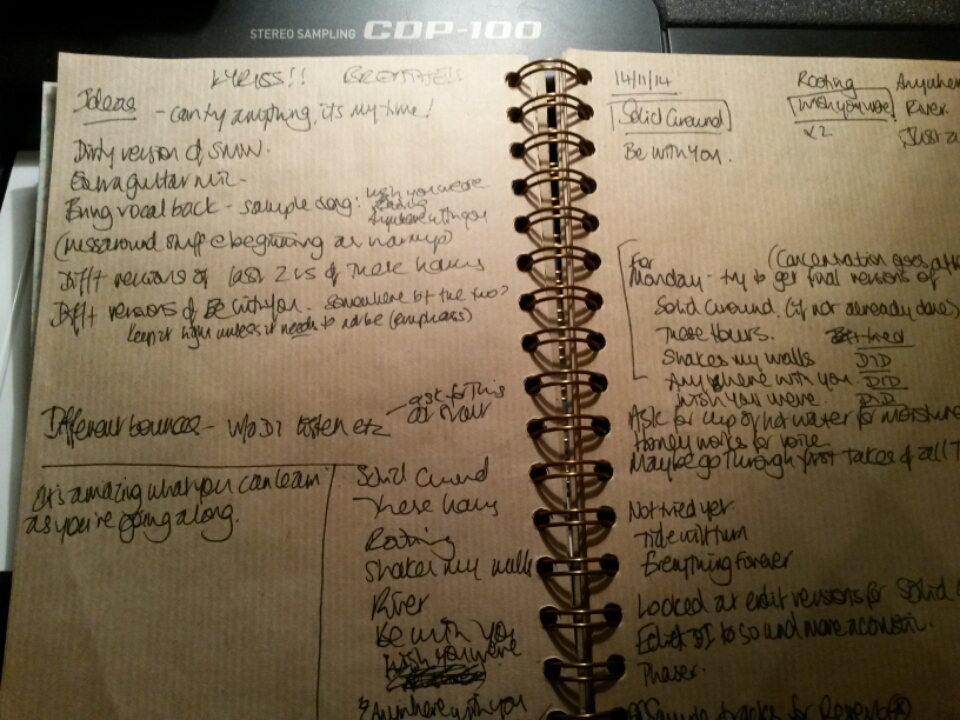 STEREO SAMPLING CDP-100
LYRISS!! BREATHE!!
Ideas - can try anything, it's my time!
Dirty version of SMW.
Extra guitar mic -
Bring vocal back - sample song: wish you were
Anywhere with you
(mess around stuff @ beginning as warmup)
Diff't versions of last 2 vs of These hours
Diff't versions of Be with you. Somewhere b/t the two?
Keep it light unless it needs to not be (emphasis)
Different bounces - w/o DI listen etc
ask for this
as I hour
It's amazing what you can learn
as you're going along.
Solid Ground
These hours
Rooting
Shakes my walls
River
Be with you
Wish you were
Anywhere with you
14/11/14
Solid Ground
Be with you.
Rooting
Wish you were
x2
Anywhere
River
Just a
For
Monday - try to get final versions of
(Concentration goes
Solid Ground. (if not already done)
These hours.
Shakes my walls DID
Anywhere with you DID
Wish you were DID
Ask for cup of hot water for moisture
Honey works for voice
Maybe go through first takes of all
Not tried yet.
Tide will turn
Everything Forever
Looked at edit versions for Solid
Edit DI to sound more acoustic.
Phaser.
Sample tracks for